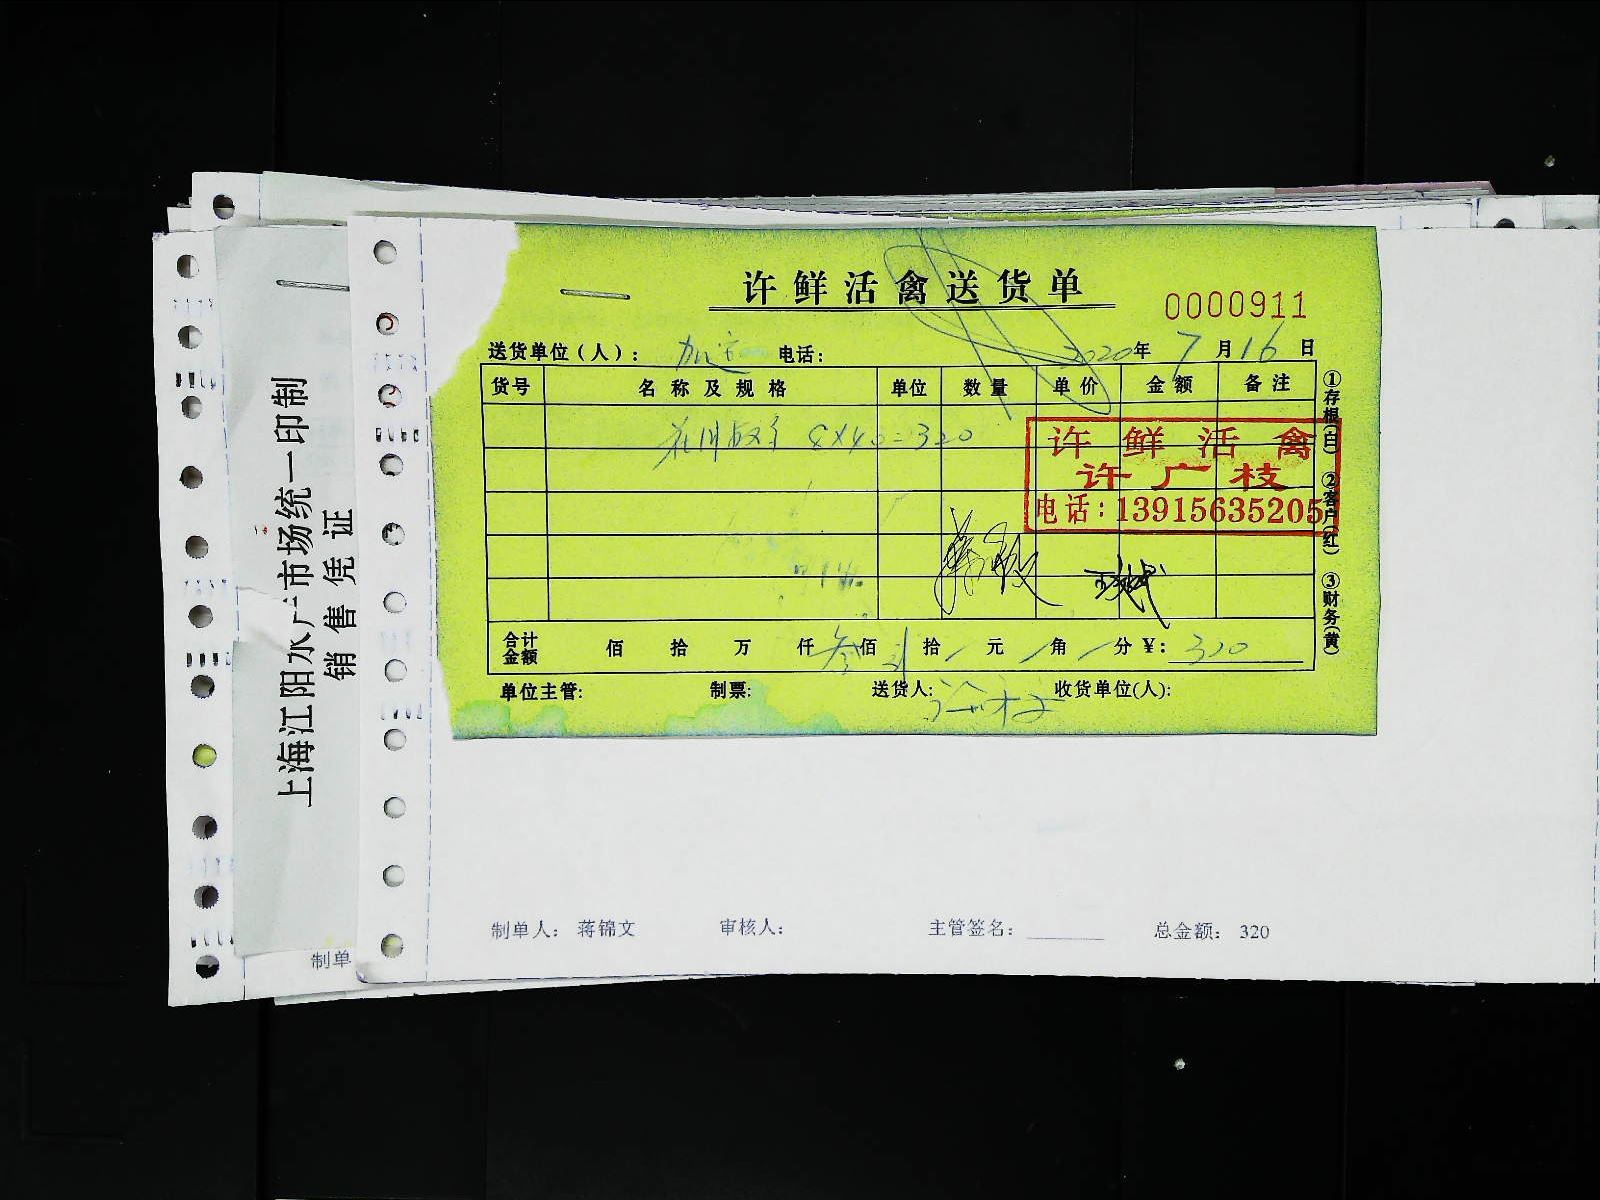 许鲜活禽送货单
0000911
送货单位（人）： 电话： 2020年 7 月 16 日
货号 名称及规格 单位 数量 单价 金额 备注
8X40=320
许 鲜 活 禽
许广枝
电话：13915635205
合计金额 佰 拾 万 仟 叁佰 贰拾 元 角 分 ¥：320
单位主管: 制票: 送货人: 收货单位(人):
①存根(白) ②客户(红) ③财务(黄)
制单人： 蒋锦文 审核人： 主管签名： 总金额： 320
上海江阳水产市场统一印制
销售凭证
制单